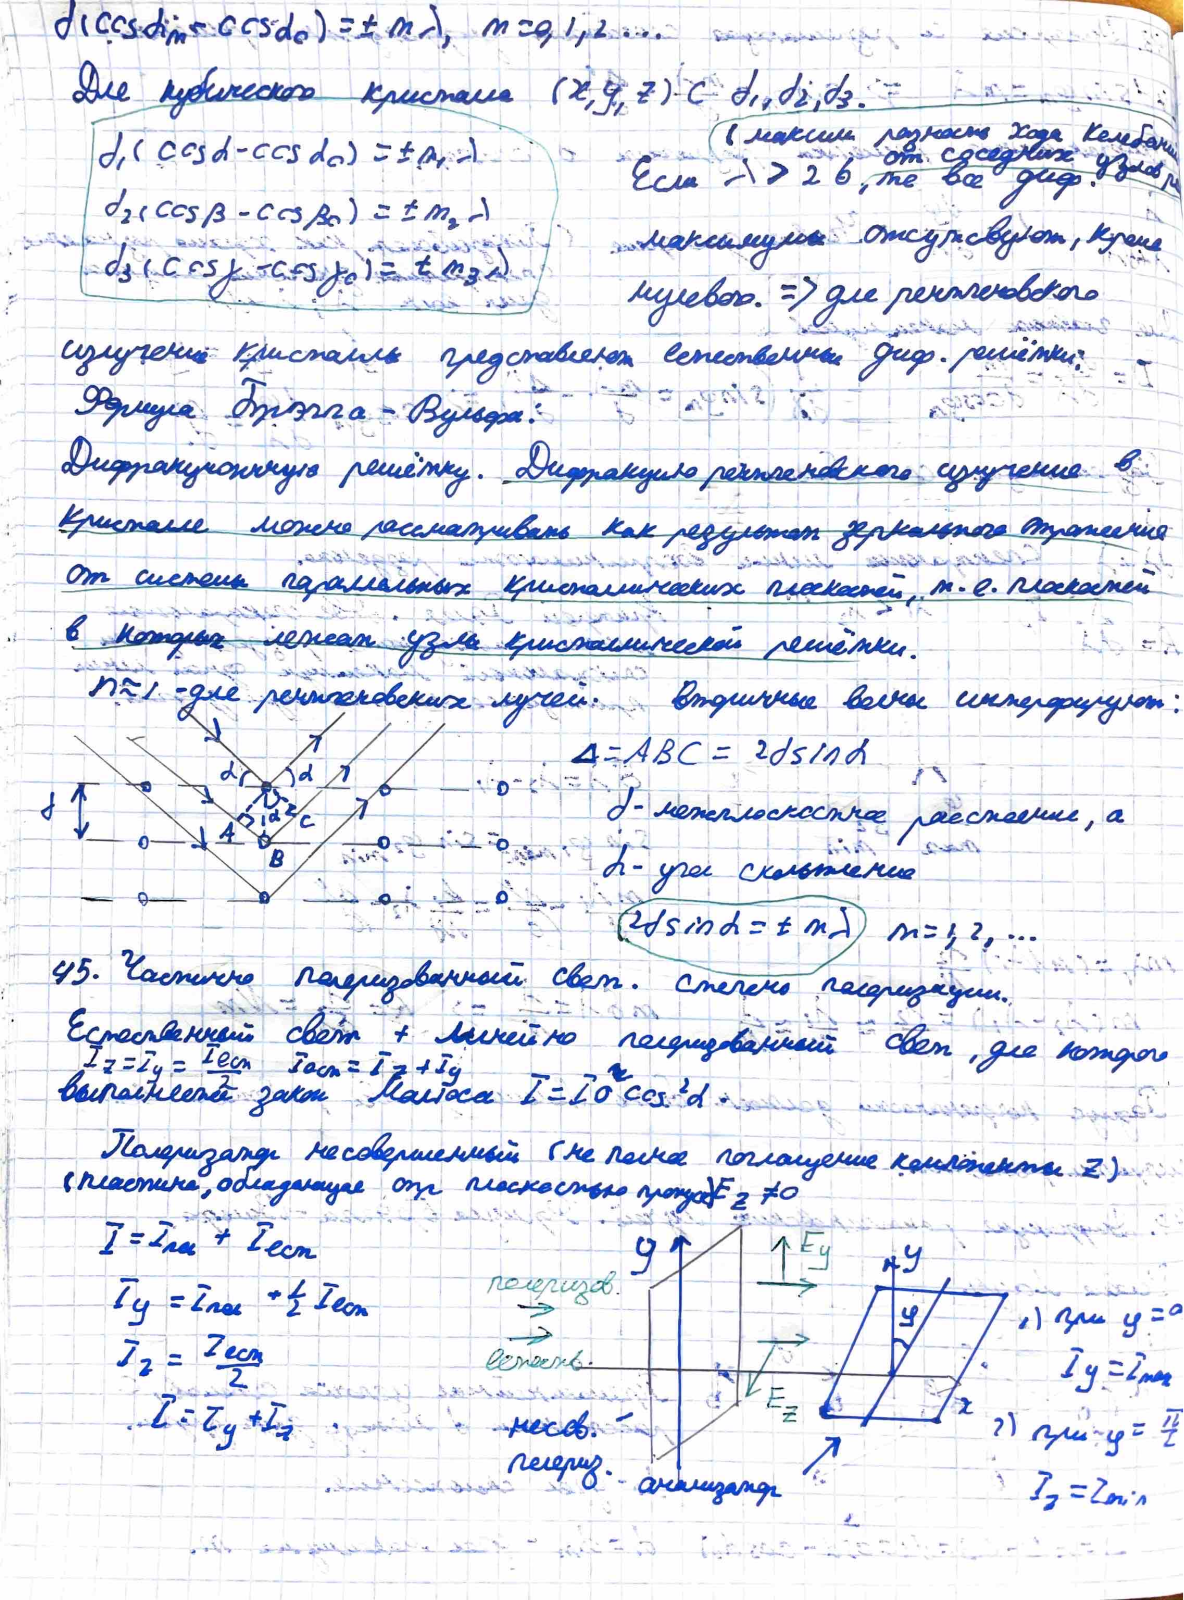 d(cosαm - cosα₀) = ± mλ, m=0,1,2...
Для кубического кристала (x,y,z) с d₁,d₂,d₃.
d₁(cosα - cosα₀) = ±m₁λ
d₂(cosβ - cosβ₀) = ±m₂λ
d₃(cosγ - cosγ₀) = ±m₃λ
(максим разность хода колебани
от соседних узлов
Если λ > 2б, то все диф.
максимумы отсутсвуют, кроме
нулевого. => для рентгеновского
излучения кристаллы представляют естественные диф. решётки:
Формула Брэгга - Вульфа:
Дифракционную решётку. Дифракцию рентгеновского излучения в
кристалле можно рассматривать как результат зеркального отражения
от системы параллельных кристаллических плоскостей, т.е. плоскостей
в которых лежат узлы кристаллической решётки.
n≈1 - для рентгеновских лучей. Вторичные волны интерферируют:
Δ=ABC = 2dsinα
d - межплоскостное расстояние, а
α - угол скольжения
α α
α
d
A B C
2dsinα = ± mλ m=1,2,...
45. Частично поляризованный свет. Степень поляризации.
Естественный свет + линейно поляризованный свет, для которого
Iz = Iy = Iест/2 Iест = Iz + Iy
выполняется закон Малюса I = I0 cos²α.
Поляризатор несовершенный (не полное поглощение компоненты z)
(пластина, обладающая опр плоскостью пропуск) Ez ≠ 0
I = Iпол + Iест
Iy = Iпол + 1/2 Iест
Iz = Iест/2
I = Iy + Iz
поляризов.
естеств.
несов.
поляриз.
анализатор
y
Ey
Ez
y
φ
x
1) при φ = 0
Iy = Imax
2) при φ = π/2
Iz = Imin